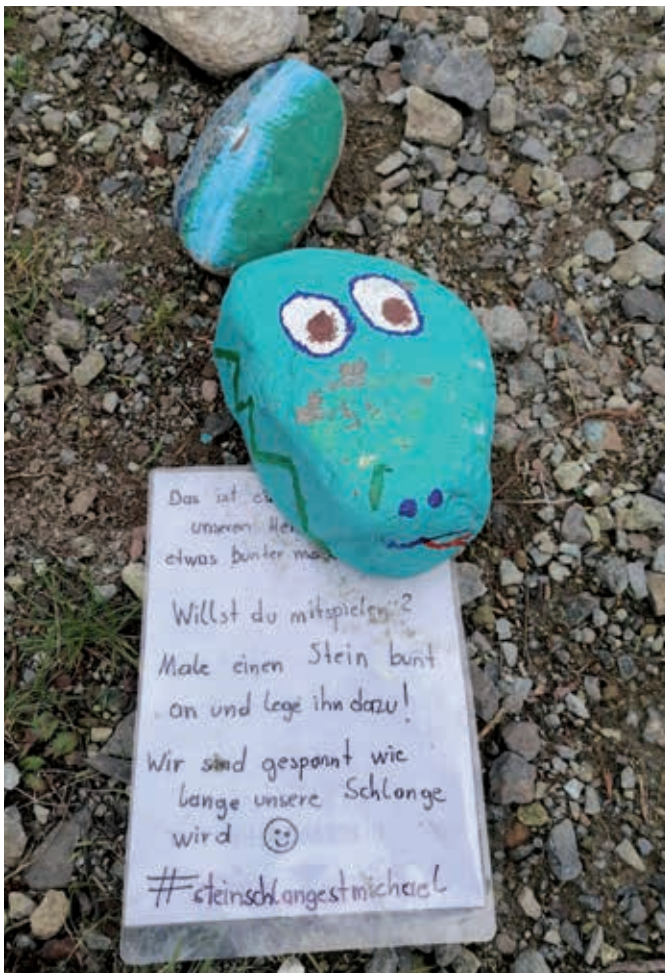 Das ist
unseren
etwas bunter
Willst du mitspielen?
Male einen Stein bunt
an und lege ihn dazu!
Wir sind gespannt wie
lange unsere Schlange
wird ☺
#steinschlangestmichael